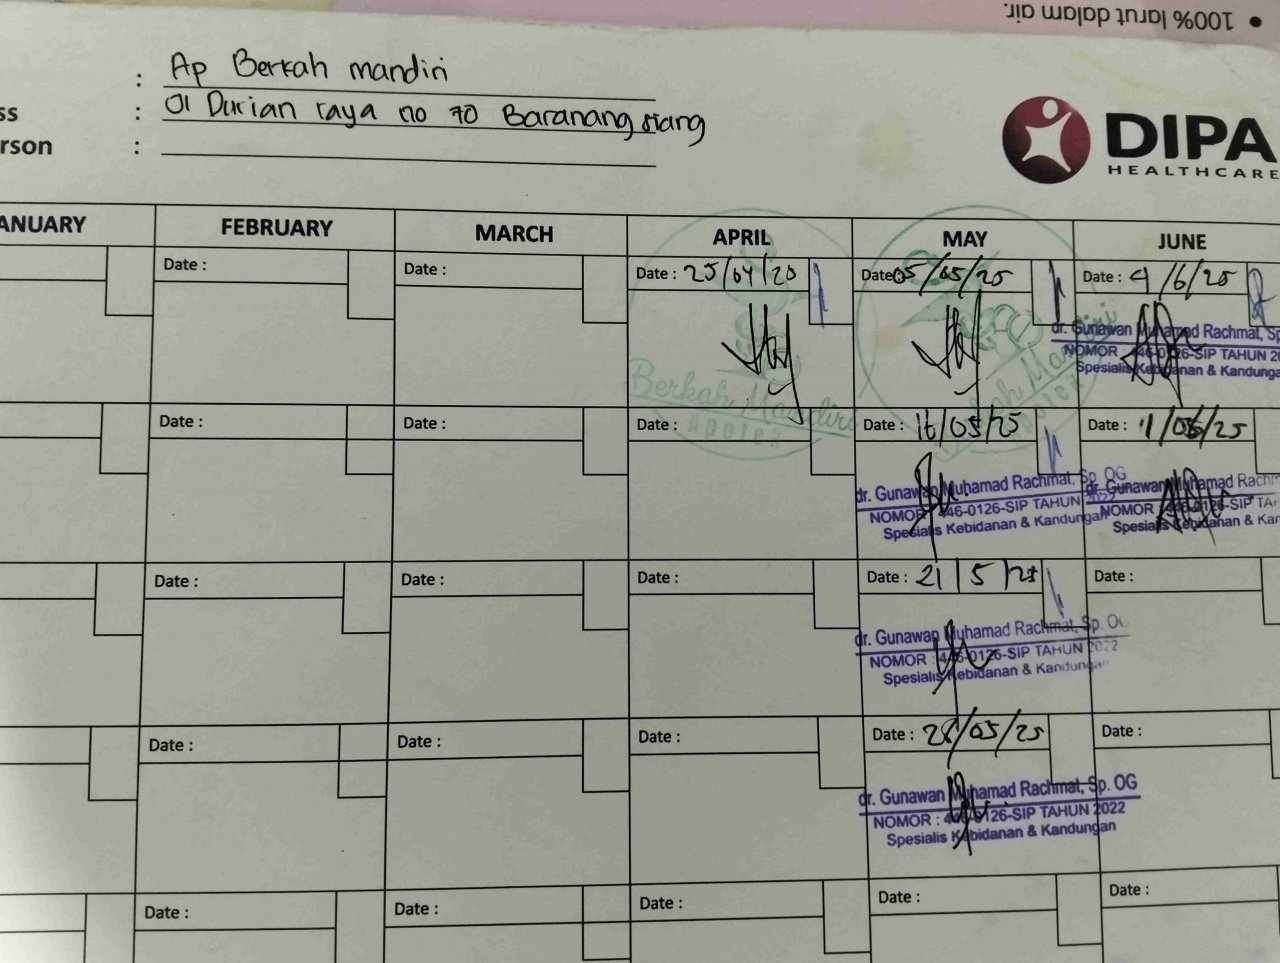 • 100% larut dalam air.
: Ap Berkah mandiri
ss : Jl Durian raya no 70 Baranang siang
rson :
DIPA
HEALTHCARE
ANUARY FEBRUARY MARCH APRIL MAY JUNE
Date : Date : Date : 25/04/20 Date 05/05/25 Date : 4/6/25
Berkah Mandiri
Apotek
Berkah Mandiri
Apotek
dr. Gunawan Muhamad Rachmat, Sp
NOMOR 446-0126-SIP TAHUN 20
Spesialis Kebidanan & Kandungan
Date : Date : Date : Date : 16/05/25 Date : 11/06/25
dr. Gunawan Muhamad Rachmat, Sp. OG
NOMOR 446-0126-SIP TAHUN 2022
Spesialis Kebidanan & Kandungan
dr. Gunawan Muhamad Rachm
NOMOR 446-0126-SIP TA
Spesialis Kebidanan & Kan
Date : Date : Date : Date : 21/5/25 Date :
dr. Gunawan Muhamad Rachmat, Sp. OG
NOMOR : 446-0126-SIP TAHUN 2022
Spesialis Kebidanan & Kandungan
Date : Date : Date : Date : 28/05/25 Date :
dr. Gunawan Muhamad Rachmat, Sp. OG
NOMOR : 446-0126-SIP TAHUN 2022
Spesialis Kebidanan & Kandungan
Date : Date : Date : Date : Date :